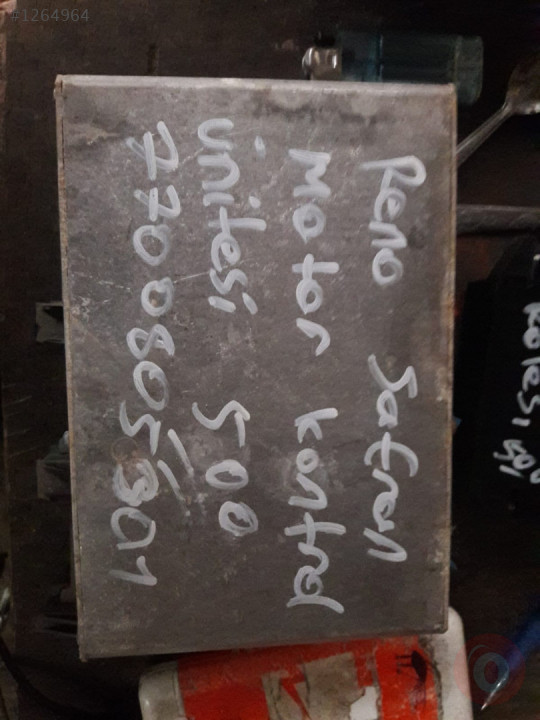 #1264964
Reno Safran
Motor kontrol
ünitesi 500
7700805301